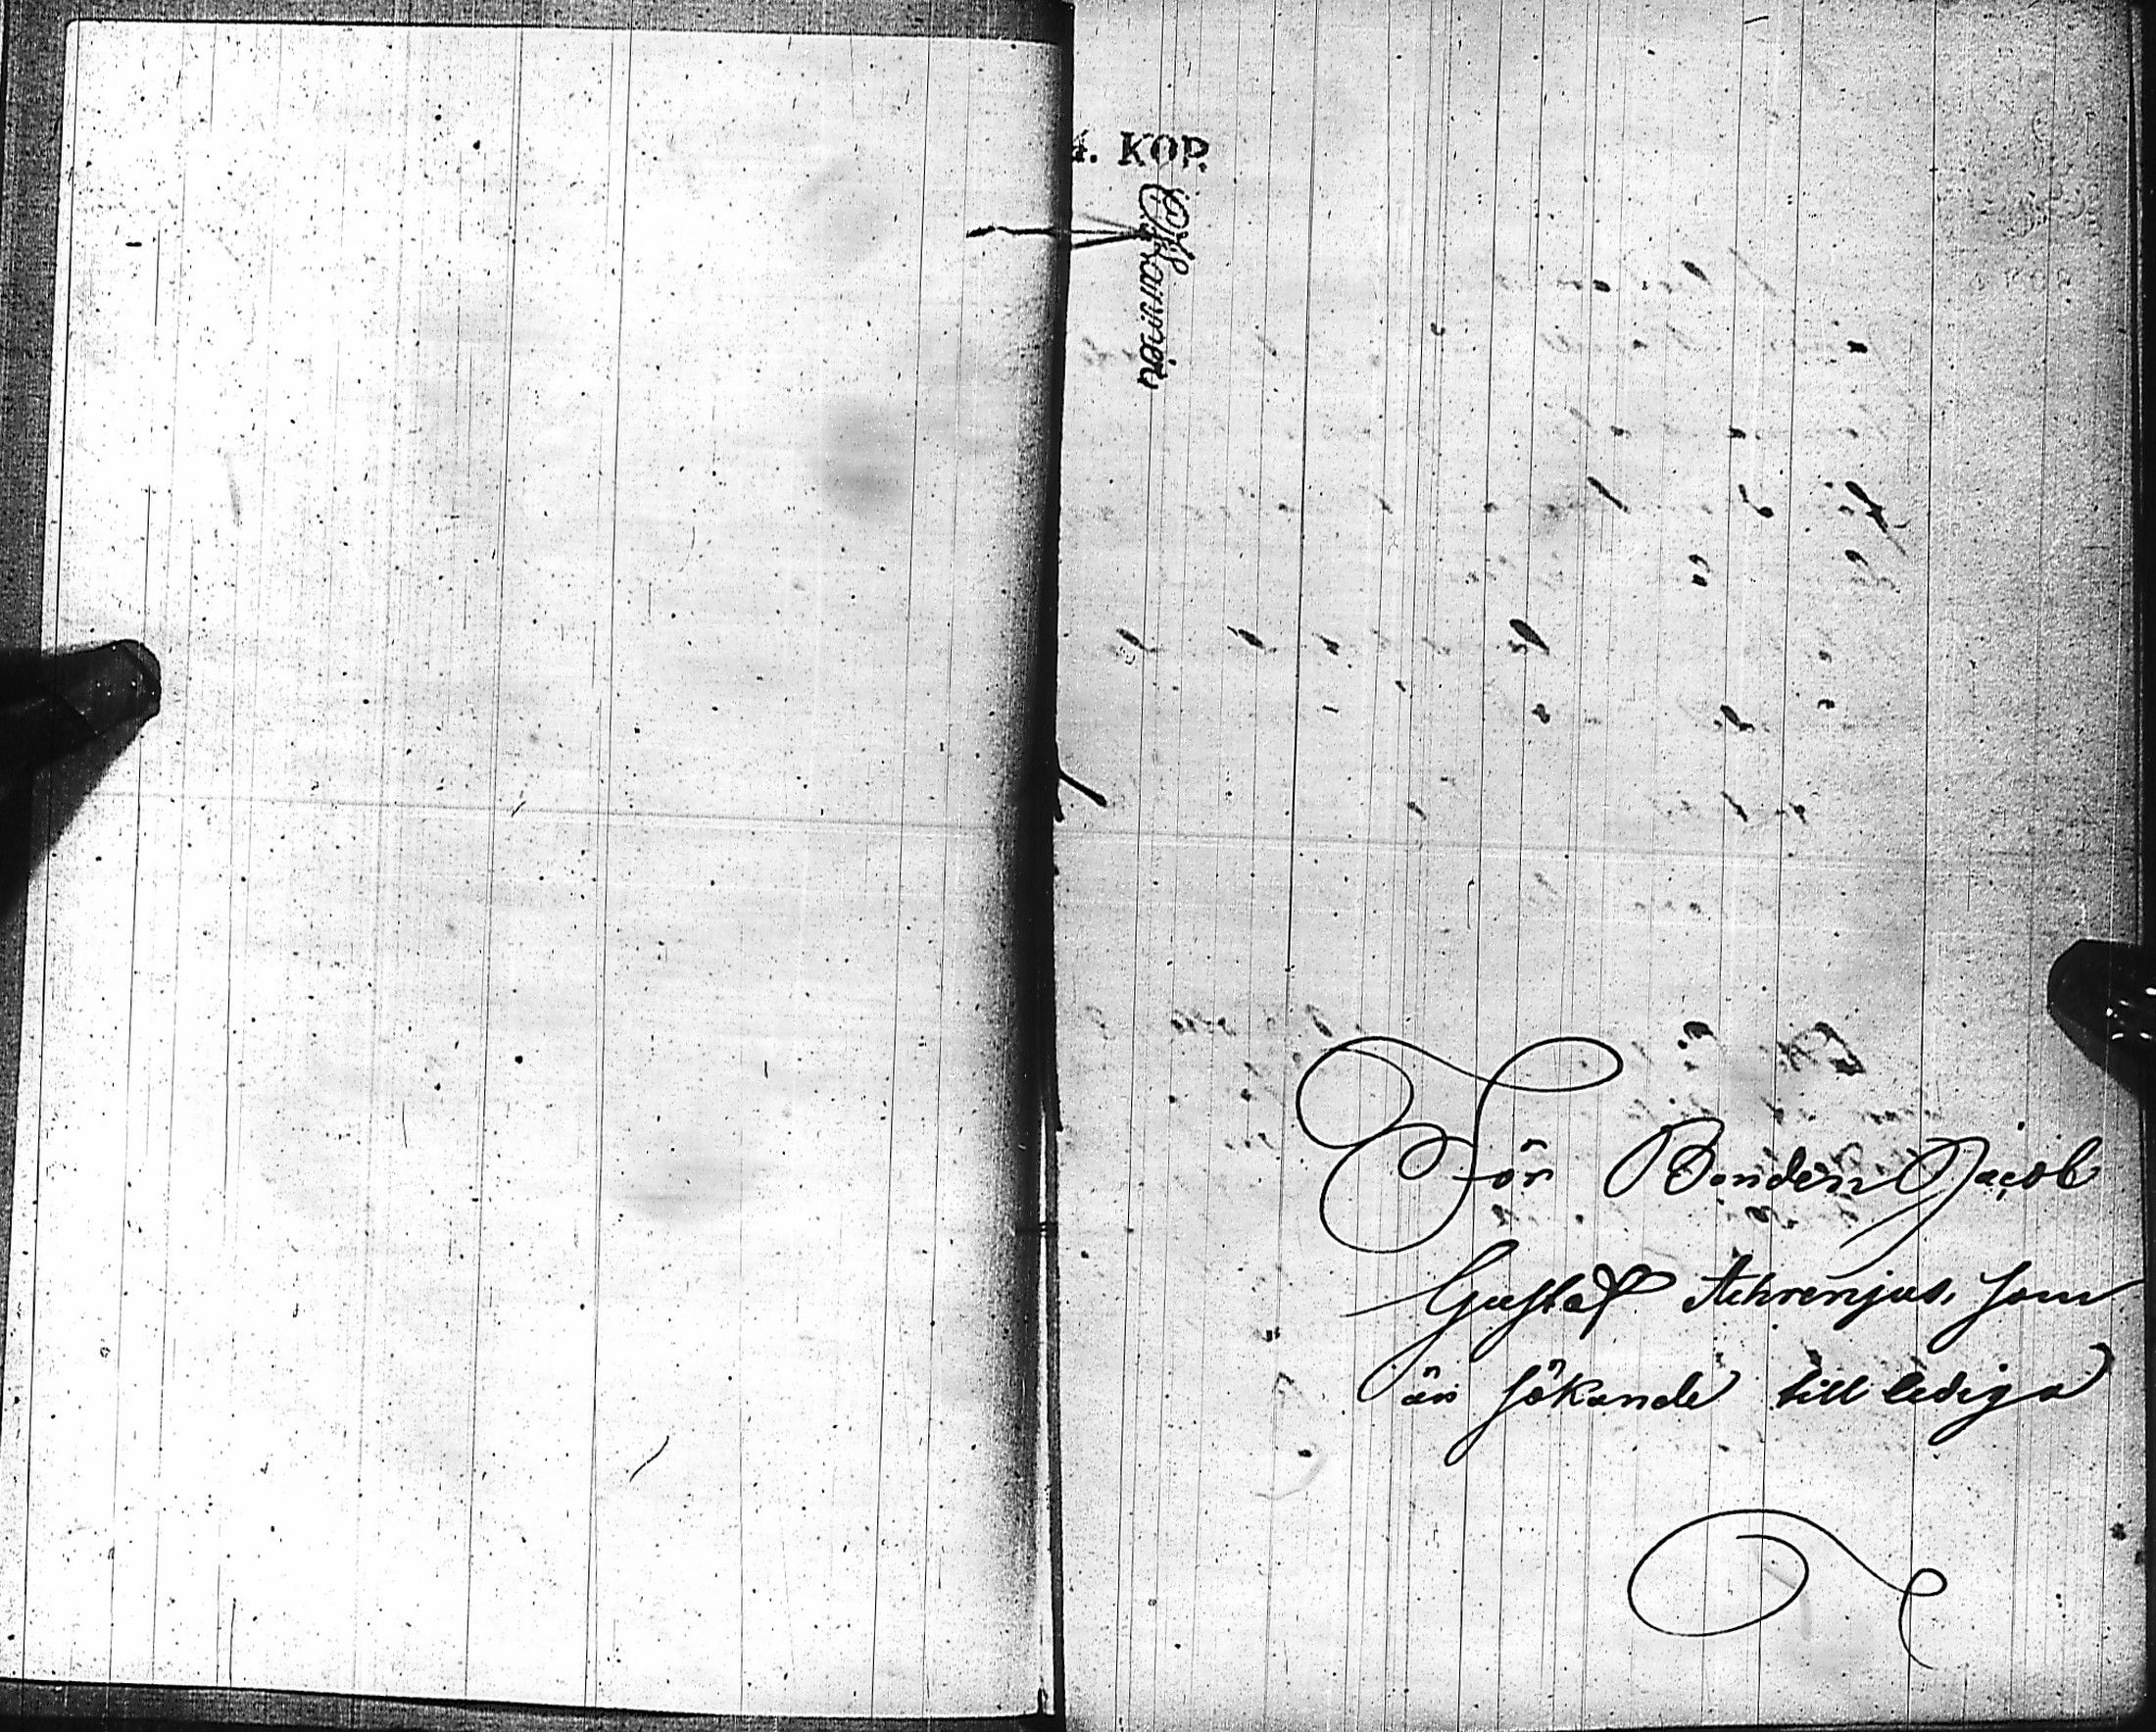 4. KOP.
För Bonden Jacob
Gustaf Ahrenjus, som
är sökande till lediga